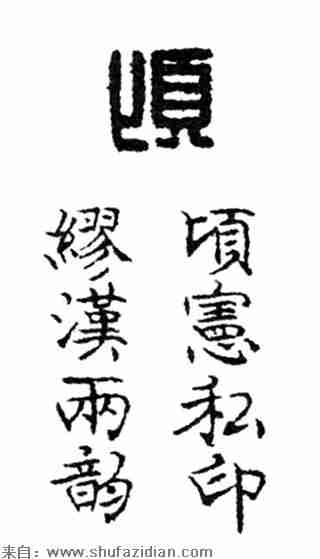 頃
頃憲私印
繆漢兩韵
来自：www.shufazidian.com